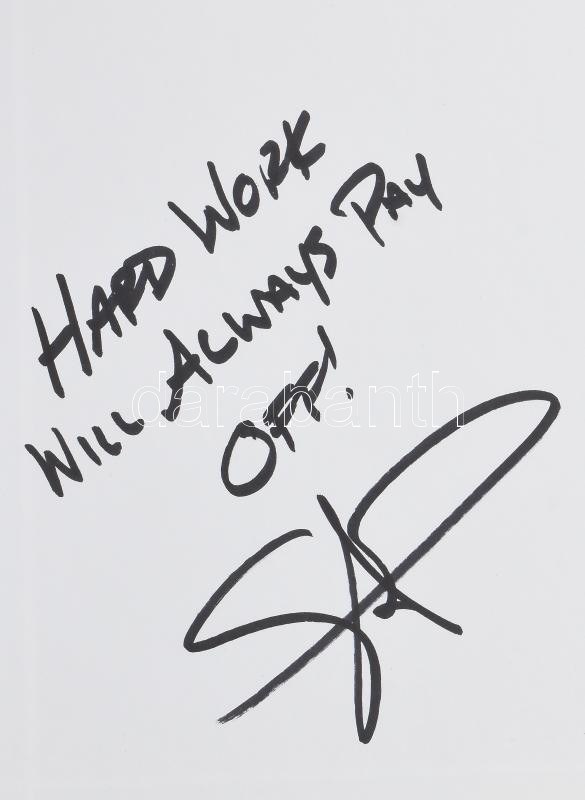 HARD WORK
WILL ALWAYS PAY
OFF!
darabanth